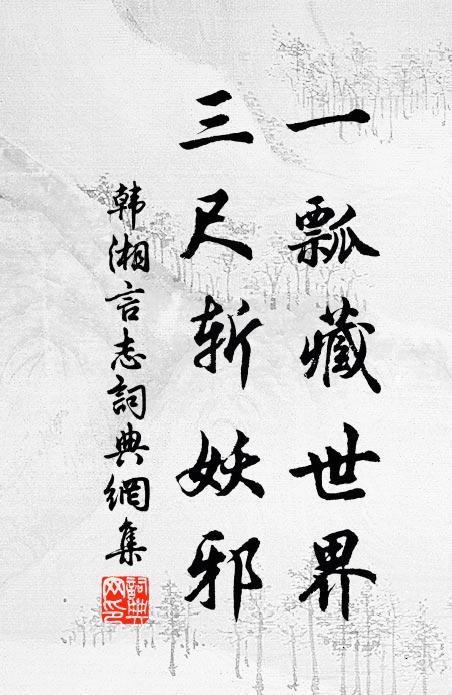 一瓢藏世界
三尺斩妖邪
韩湘言志詞典網集